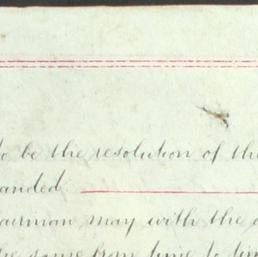 to be the resolution of the
anded.
airman may with the
the same from time to tim